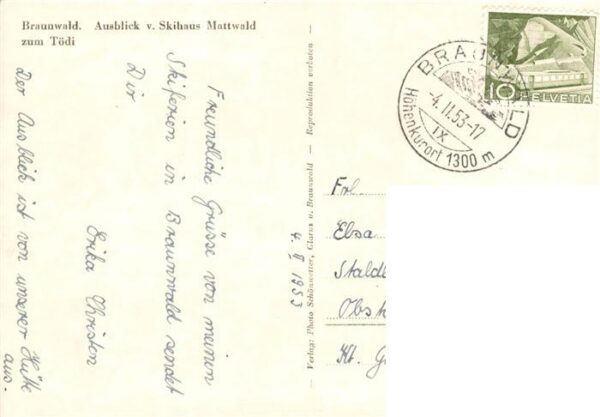 Braunwald. Ausblick v. Skihaus Mattwald
zum Tödi
Freundliche Grüsse von meinen
Skiferien in Braunwald sendet
Dir
Erika Christen
Der Ausblick ist von unserer Hütte
aus.
4. II 1953
Verlag: Photo Schönwetter, Glarus u. Braunwald — Reproduktion verboten —
BRAUNWALD
-4.II.53-17
IX
Höhenkurort 1300 m
10
HELVETIA
Frl.
Elsa
Obst
Kt. G